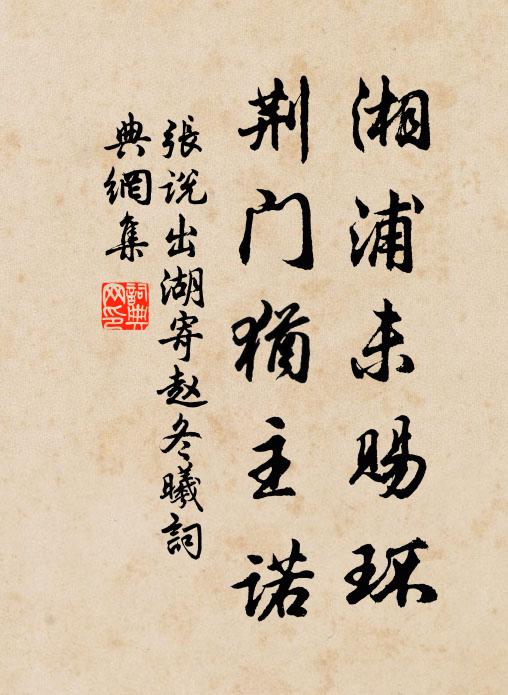 湘浦未赐环
荆门犹主诺
張说出湖寄赵冬曦詞
典網集
詞典網印